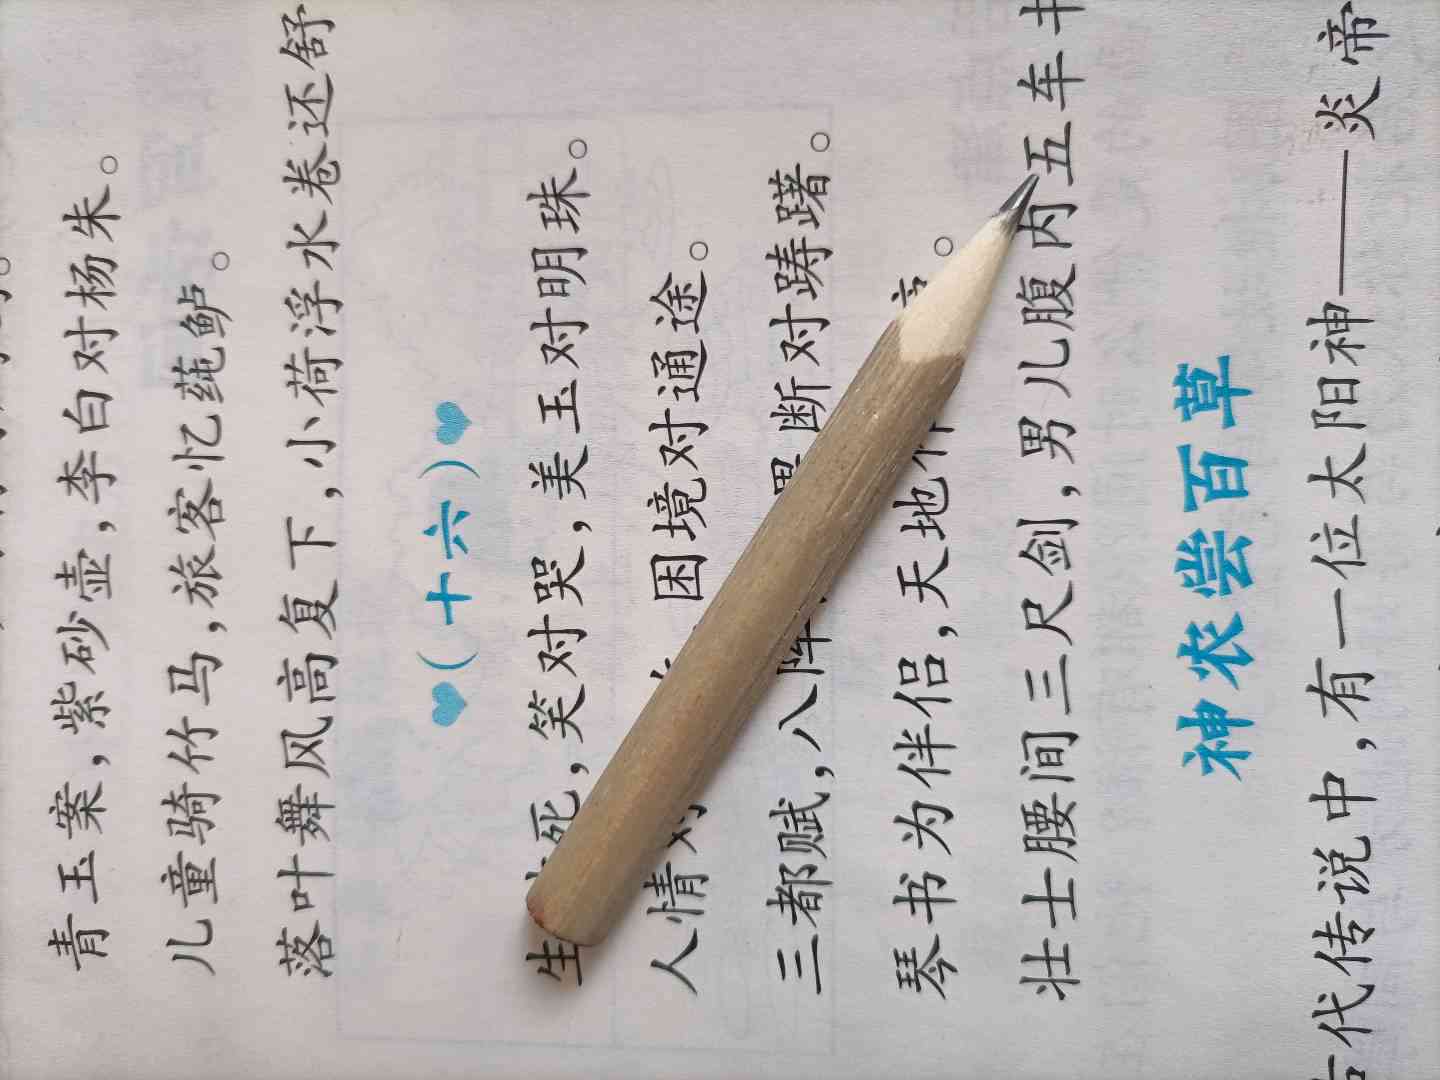 青玉案，紫砂壶，李白对杨朱。
儿童骑竹马，旅客忆莼鲈。
落叶舞风高复下，小荷浮水卷还舒
（十六）
生 死，笑对哭，美玉对明珠。
人情对 困境对通途。
三都赋，八阵 果断对踌躇。
琴书为伴侣，天地作 。
壮士腰间三尺剑，男儿腹内五车书
神农尝百草
古代传说中，有一位太阳神——炎帝